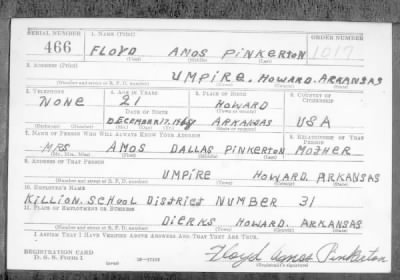 SERIAL NUMBER 1. NAME (Print) ORDER NUMBER
466 FLOYD AMOS PINKERTON 1017
(First) (Middle) (Last)
2. ADDRESS (Print)
UMPIRE. HOWARD. ARKANSAS
(Number and street or R. F. D. number) (Town) (County) (State)
3. TELEPHONE 4. AGE IN YEARS 5. PLACE OF BIRTH 6. COUNTRY OF CITIZENSHIP
NONE 21 HOWARD
DATE OF BIRTH (Town or county)
DECEMBER 17, ARKANSAS USA
(Exchange) (Number) (Mo.) (Day) (Yr.) (State or country)
7. NAME OF PERSON WHO WILL ALWAYS KNOW YOUR ADDRESS 8. RELATIONSHIP OF THAT PERSON
MRS AMOS DALLAS PINKERTON MOTHER
(Mr., Mrs., Miss) (First) (Middle) (Last)
9. ADDRESS OF THAT PERSON
UMPIRE HOWARD. ARKANSAS
(Number and street or R. F. D. number) (Town) (County) (State)
10. EMPLOYER'S NAME
KILLION. SCHOOL DISTRICT NUMBER 31
11. PLACE OF EMPLOYMENT OR BUSINESS
DIERKS HOWARD. ARKANSAS
(Number and street or R. F. D. number) (Town) (County) (State)
I AFFIRM THAT I HAVE VERIFIED ABOVE ANSWERS AND THAT THEY ARE TRUE.
REGISTRATION CARD
D. S. S. Form 1 Floyd Amos Pinkerton
(Registrant's signature)